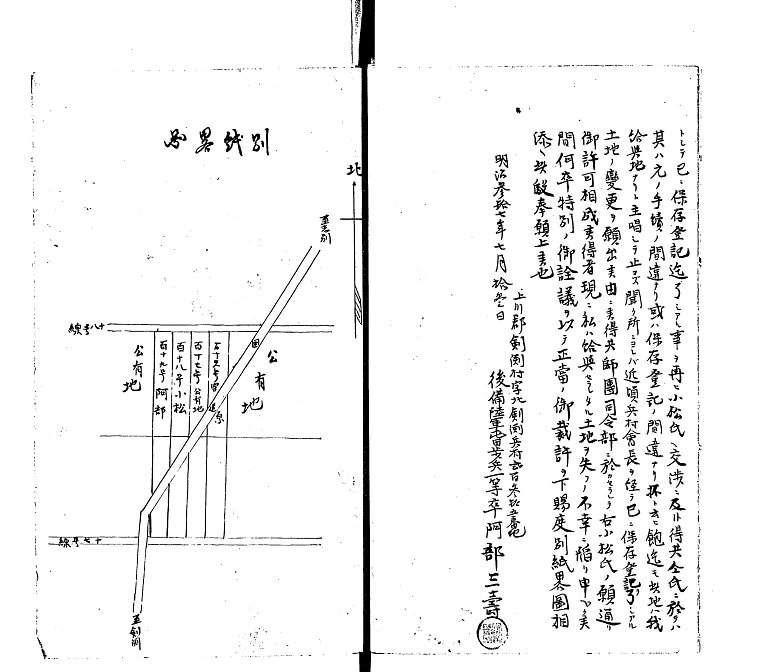 トシテ已ニ保存登記迄了シアル事ヲ再ビ小松氏ニ交渉ニ及ヒ得共仝氏ニ於テハ
其ハ元ノ手續ノ間違ナリ或ハ保存登記ノ間違ナリ抔ト云ヒ飽迄モ此地ハ我
給與地ナリト主唱シテ止マズ聞ク所ニヨレバ近頃兵村會長ヲ経テ已ニ保存登記了シアル
土地ノ變更ヲ願出末由ニ候得共師團司令部ニ於カセラレテ右小松氏ノ願通リ
御許可相成候得者現ニ私ハ給與セラレタル土地ヲ失フノ不幸ニ陥リ申ベク候
間何卒特別ノ御詮議ヲ以テ正當ノ御裁許ヲ下賜度別紙畧圖相
添ヘ此段奉願上候也
明治参拾七年七月拾参日
上川郡剣淵村字北剣淵兵村貳百参拾五番地
後備陸軍屯田歩兵一等卒阿部三壽
別紙畧図
北
至士別
十八号線
公有地
百十九号 阿部
百十八号 小松
百十七号 公有地
公有地
十七号線
至剣淵